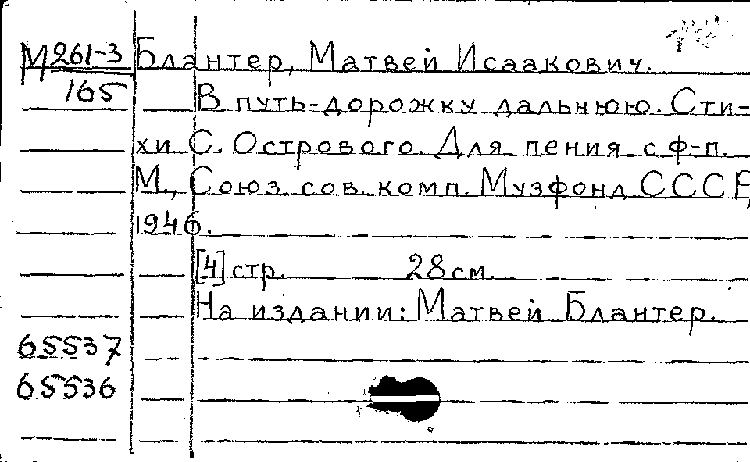 М 261-3 Блантер, Матвей Исаакович.
165 В путь-дорожку дальнюю. Сти-
хи С. Острового. Для пения с ф-п.
М., Союз сов. комп. Музфонд СССР,
1946.
[4] стр. 28 см.
На издании: Матвей Блантер.
65537
65536